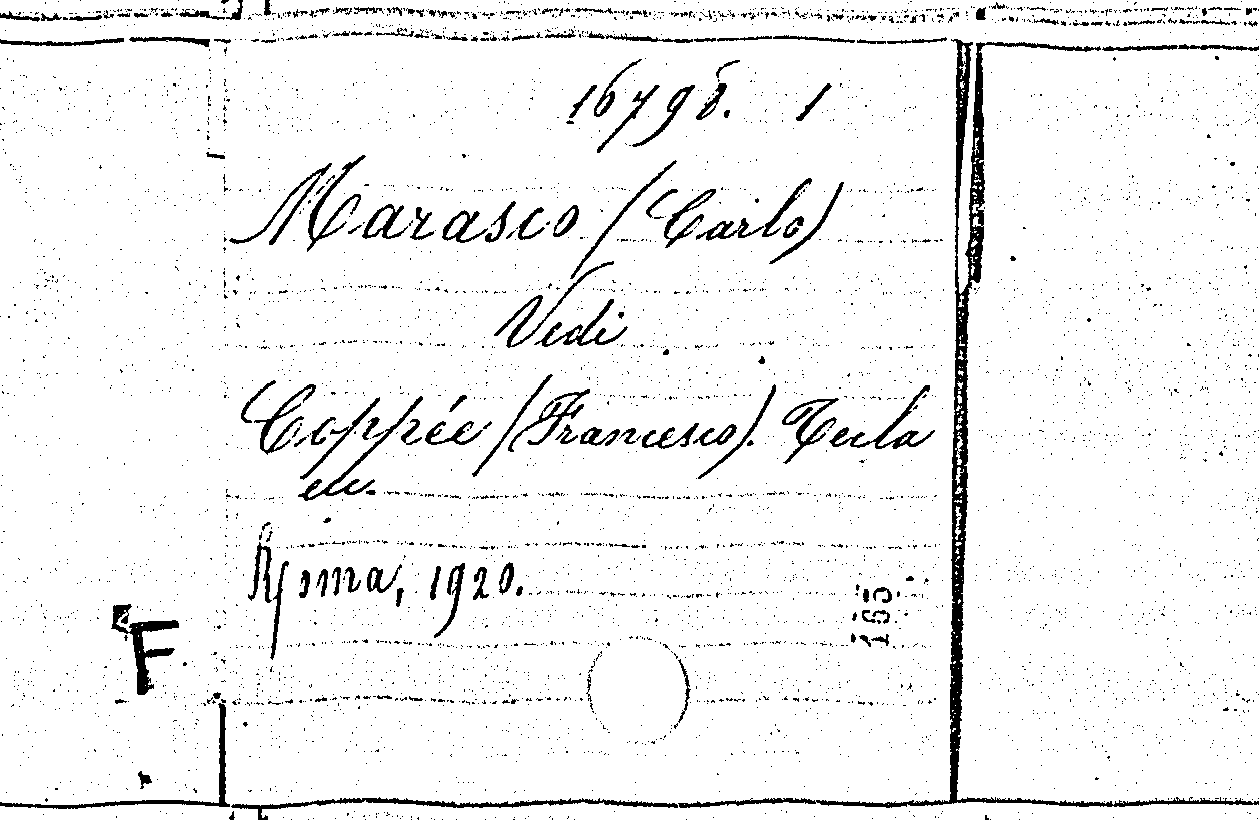 16798. 1
Marasco (Carlo)
Vedi
Coppée (Francesco). Tecla
ecc.
Roma, 1920.
165
F